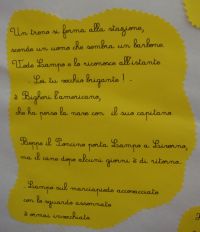 Un treno si ferma alla stazione,
scende un uomo che sembra un barbone.
Vede Lampo e lo riconosce all'istante
- Sei tu vecchio brigante! -
è Bigheri l'americano,
che ha perso la nave con il suo capitano.
Beppe il Poncino porta Lampo a Livorno,
ma il cane dopo alcuni giorni è di ritorno.
Lampo sul marciapiede accovacciato
con lo sguardo assonnato
è ormai invecchiato